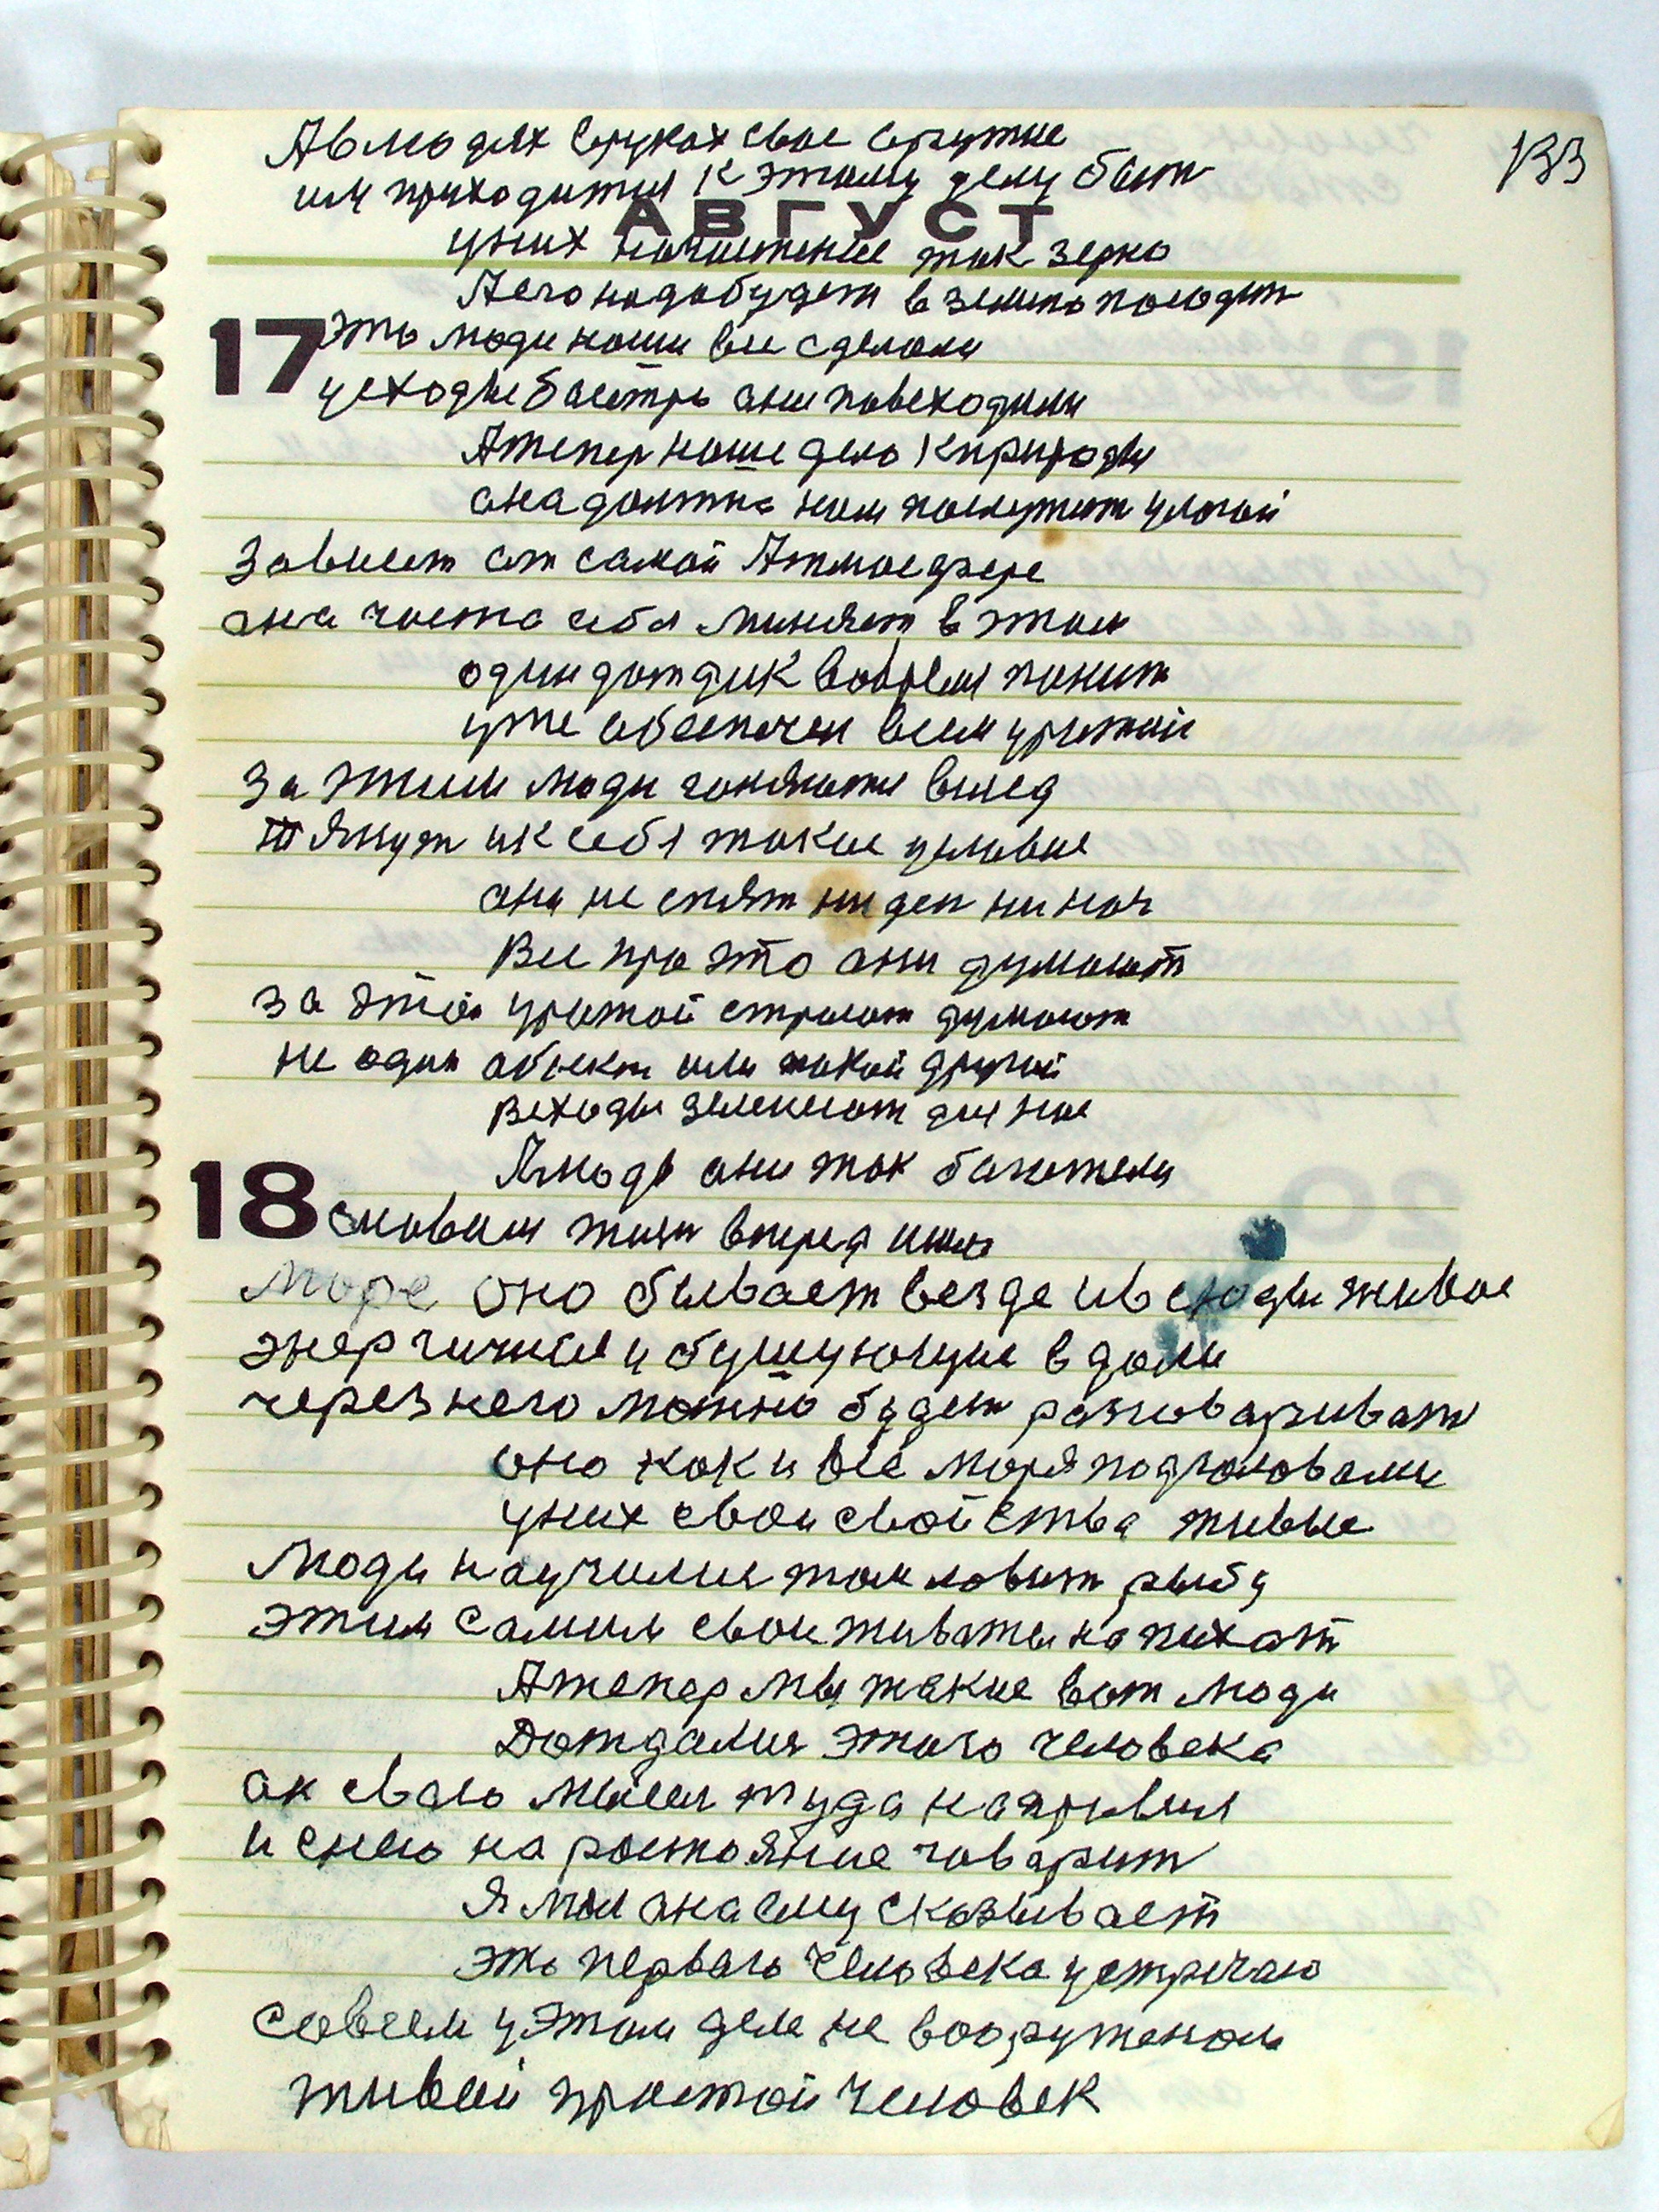 133
А в людях в руках свое оружие
им приходится к этому делу быт
АВГУСТ
у них начистенее так зерно
А его надо будет в землю посодит
17
Это люди наши все сделали
усходы быстро они повсходили
А тепер наше дело к природы
она должна нам послужит услугой
Зависит от самой Атмосфере
она часто себя миняет в этом
один дождик вовремя
уже обеспечен всем урожай
За этим люди гоняются вслед
тянут ик себя такие условие
они не спят ни ден ни ноч
Все про это они думают
за этой урожай стролот думают
не один обьект или такой другой
всходы зеленеют для нас
А люди они так богатели
18
словам жизн вперед
Море оно бывает везде и всюды живое
энергичное и бушующие в дали
через него можно будет разговариват
оно как и все моря подголовами
у них свои свойства живые
Люди научился там ловит рыбу
этим самим свои животы напихают
А тепер мы такие вот люди
Дождалися этого человека
он сваю мысел туда направил
и с нею на ростояние говорит
Я мол она ему сказывает
это первого человека устречаю
совсем у этом деле не вооруженом
живой простой человек